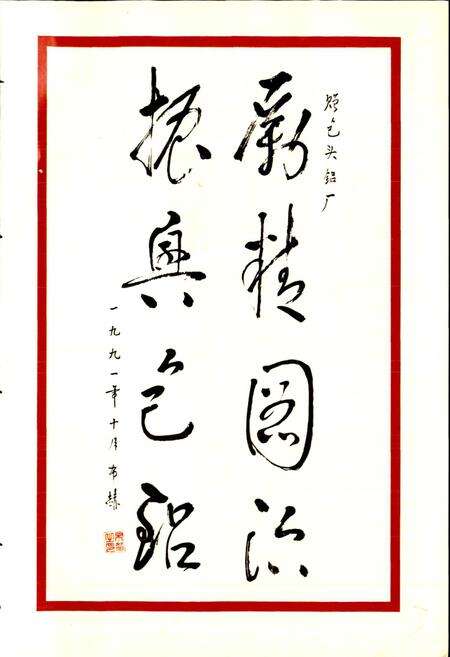 赠包头铝厂
励精图治
振兴包铝
一九九一年十月 布赫